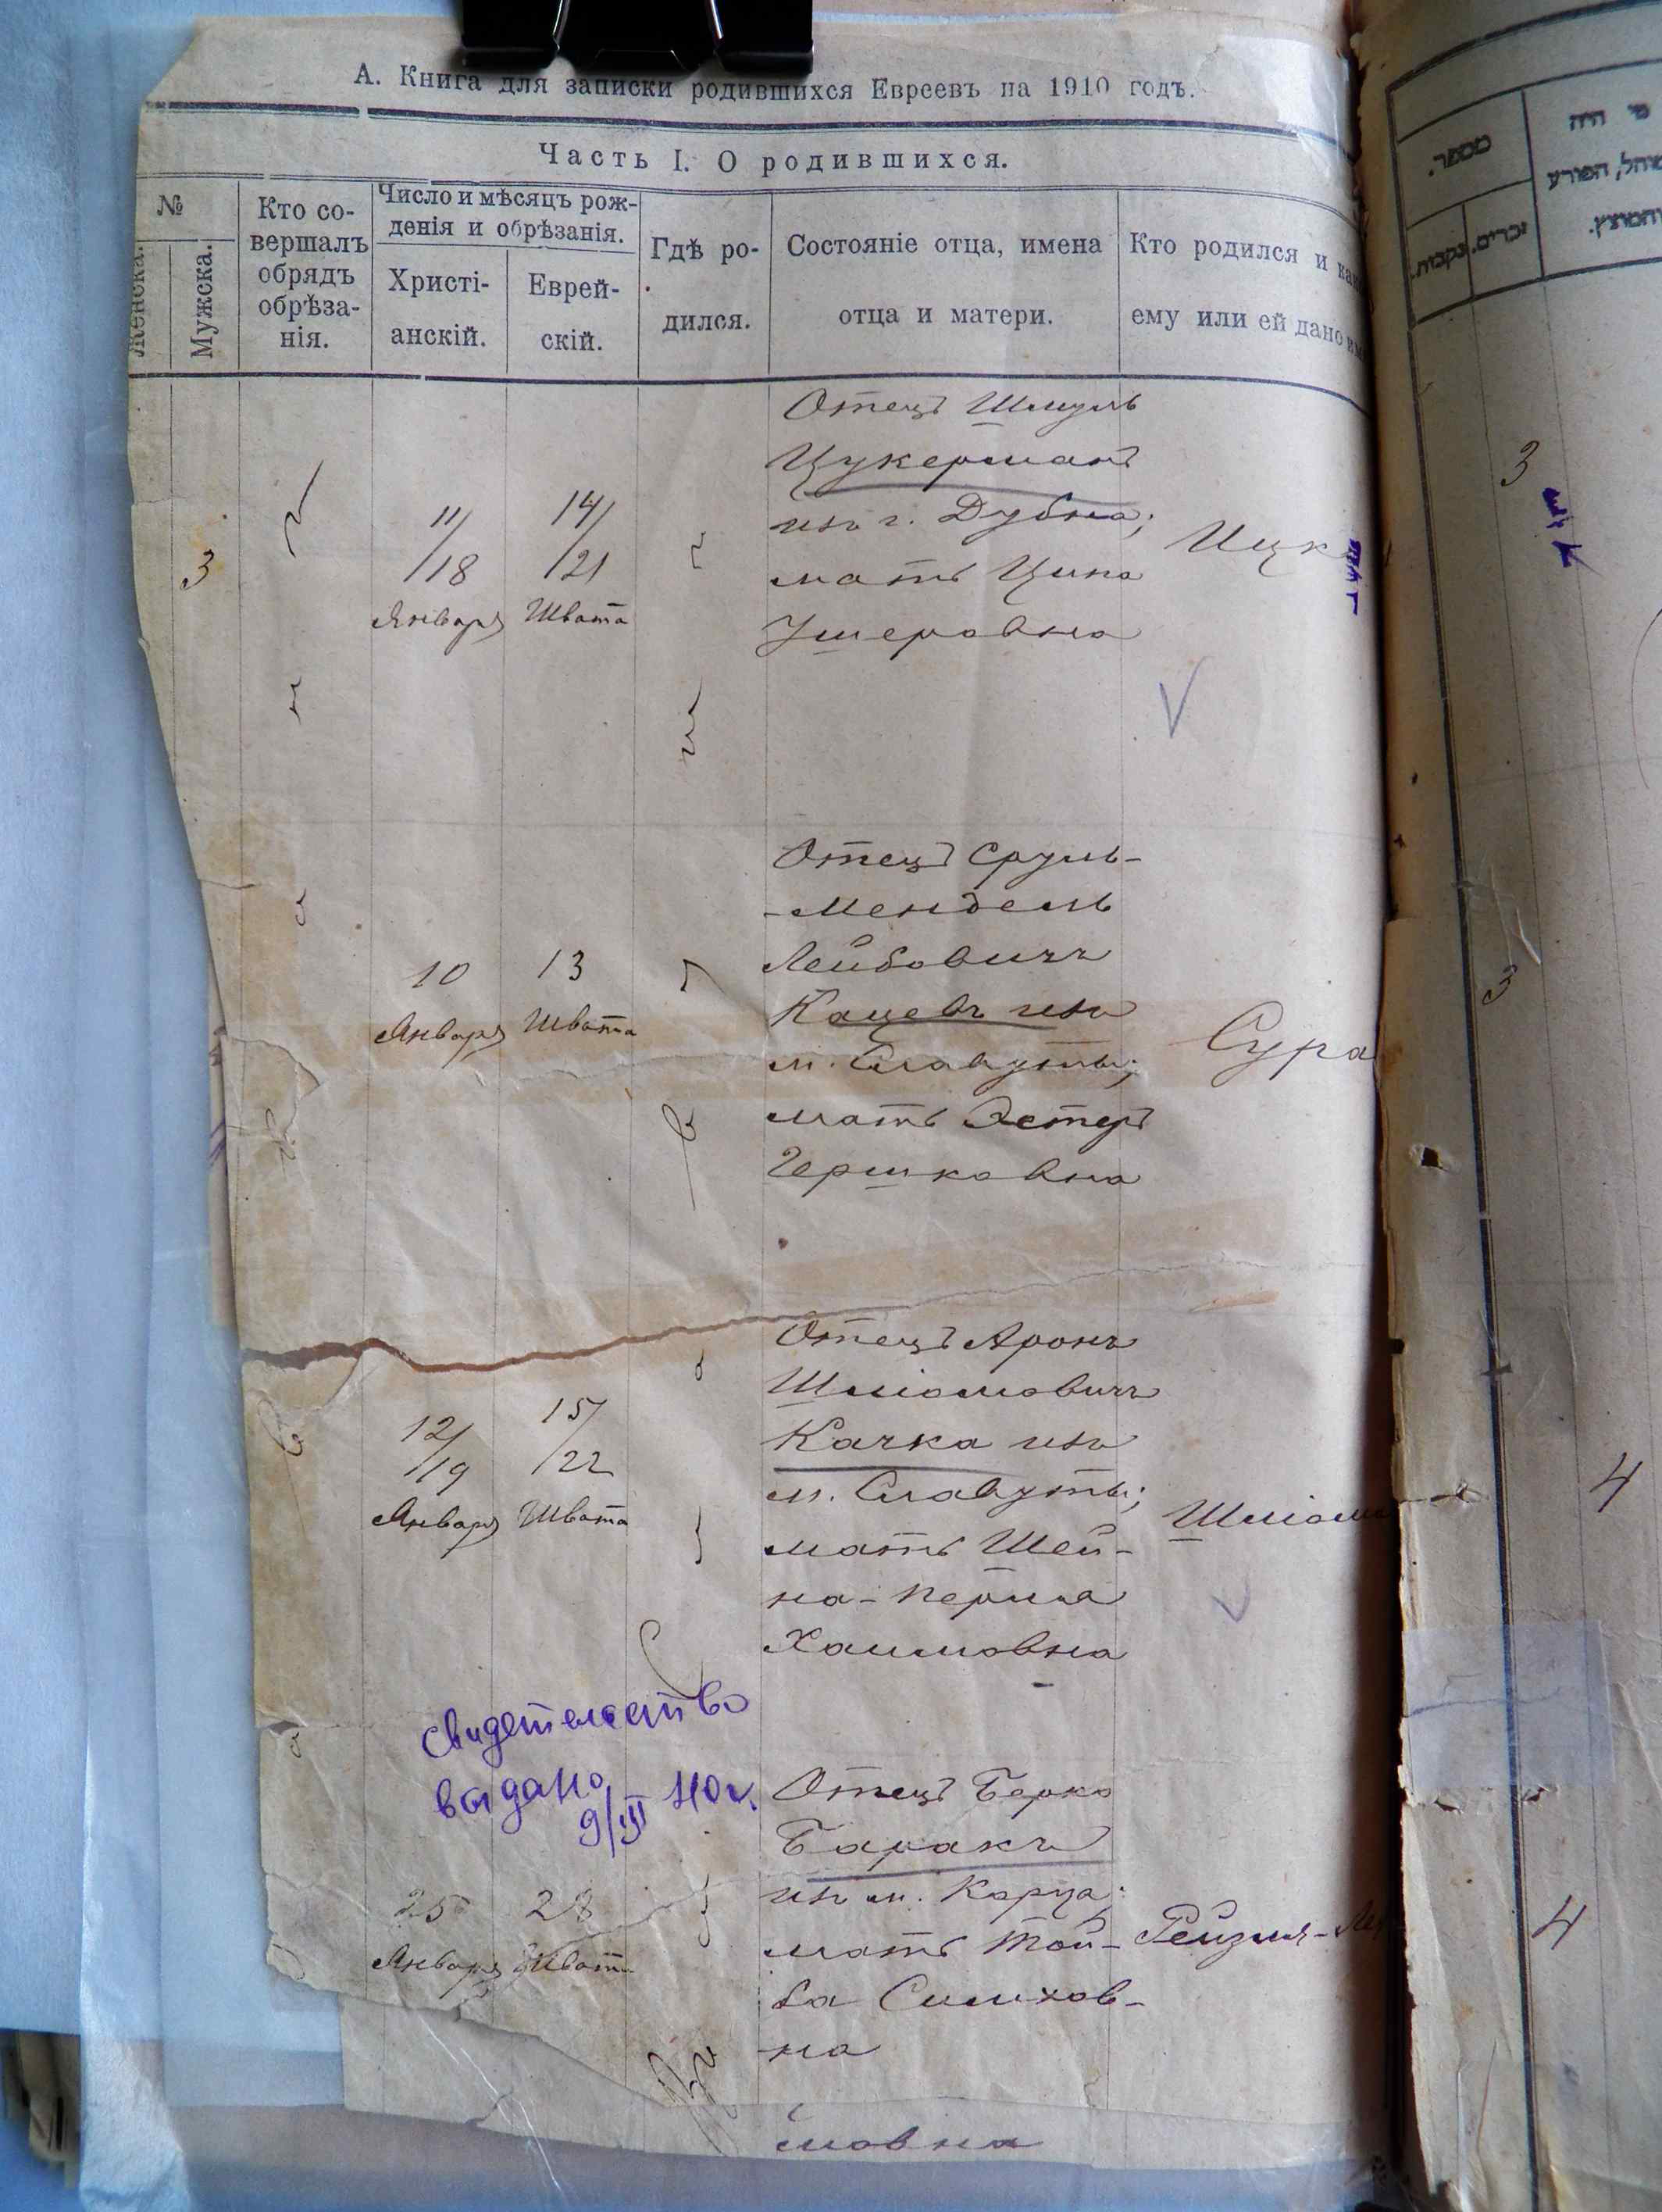 А. Книга для записки родившихся Евреевъ на 1910 годъ.
Часть I. О родившихся.
№
Женска.
Мужска.
Кто со-
вершалъ
обрядъ
обрѣза-
нія.
Число и мѣсяцъ рож-
денія и обрѣзанія.
Христі-
анскій.
Еврей-
скій.
Гдѣ ро-
дился.
Состояніе отца, имена
отца и матери.
Кто родился и
ему или ей дано
3
11/18
Января
14/21
Швата
Отецъ Шмуль
Цукерманъ
изъ г. Дубна;
мать Ципа
Ушеровна
Ицк
10
Января
13
Швата
Отецъ Сруль-
-Мендель
Лейбовичъ
Кацевъ изъ
м. Славуты;
мать Эстеръ
Гершковна
Сура
12/19
Января
15/22
Швата
Отецъ Аронъ
Шліомовичъ
Качка изъ
м. Славуты;
мать Шей-
на-Перля
Хаимовна
Шліома
свидетельство
выдано
9/III 110 г.
25
Января
28
Швата
Отецъ Берко
Баракъ
изъ м. Корца;
мать Той-
ба Симхов-
на
Рейзля-
мовна
מספר.
זכרים.
נקבות.
מי היה
3
3
4
4